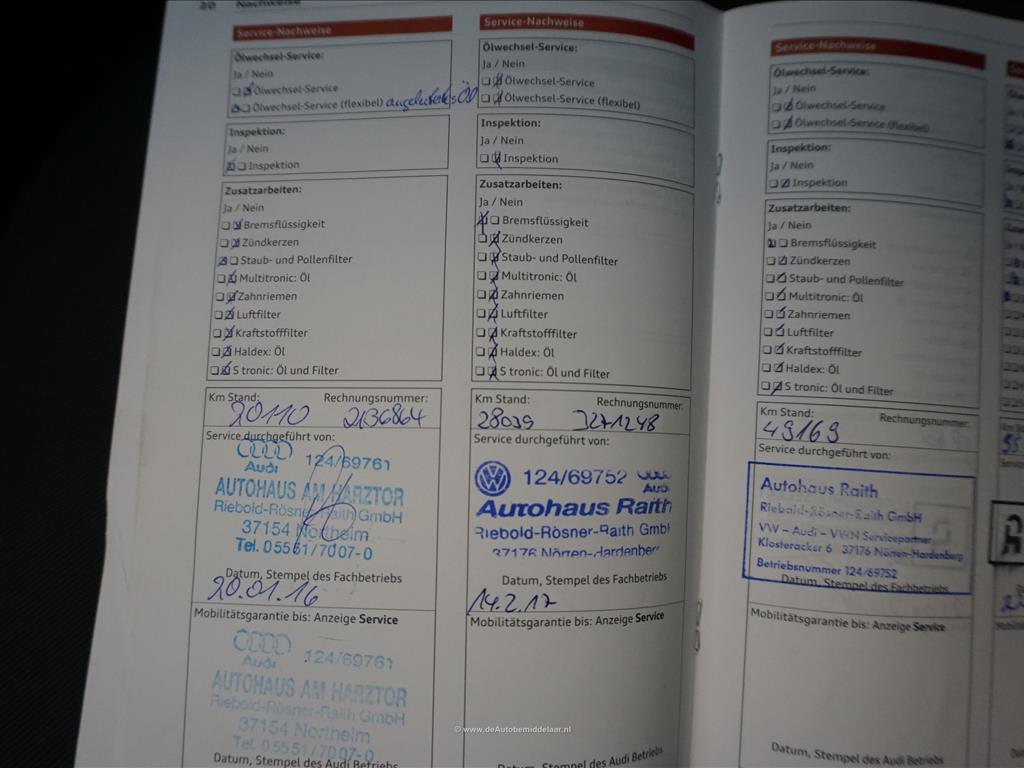 20 Nachweise
Service-Nachweise
Ölwechsel-Service:
Ja / Nein
Ölwechsel-Service
Ölwechsel-Service (flexibel) angeliefertes Öl
Inspektion:
Ja / Nein
Inspektion
Zusatzarbeiten:
Ja / Nein
Bremsflüssigkeit
Zündkerzen
Staub- und Pollenfilter
Multitronic: Öl
Zahnriemen
Luftfilter
Kraftstofffilter
Haldex: Öl
S tronic: Öl und Filter
Km Stand: Rechnungsnummer:
20110 2136864
Service durchgeführt von:
Audi 124/69761
AUTOHAUS AM HARZTOR
Riebold-Rösner-Raith GmbH
37154 Northeim
Tel. 05551/7007-0
Datum, Stempel des Fachbetriebs
20.01.16
Mobilitätsgarantie bis: Anzeige Service
Audi 124/69761
AUTOHAUS AM HARZTOR
Riebold-Rösner-Raith GmbH
37154 Northeim
Tel. 05551/7007-0
Datum, Stempel des Audi Betriebs
Service-Nachweise
Ölwechsel-Service:
Ja / Nein
Ölwechsel-Service
Ölwechsel-Service (flexibel)
Inspektion:
Ja / Nein
Inspektion
Zusatzarbeiten:
Ja / Nein
Bremsflüssigkeit
Zündkerzen
Staub- und Pollenfilter
Multitronic: Öl
Zahnriemen
Luftfilter
Kraftstofffilter
Haldex: Öl
S tronic: Öl und Filter
Km Stand: Rechnungsnummer:
28039 3271248
Service durchgeführt von:
124/69752 Audi
Autohaus Raith
Riebold-Rösner-Raith GmbH
37176 Nörten-Hardenber
Datum, Stempel des Fachbetriebs
14.2.17
Mobilitätsgarantie bis: Anzeige Service
Datum, Stempel des Audi Betriebs
Service-Nachweise
Ölwechsel-Service:
Ja / Nein
Ölwechsel-Service
Ölwechsel-Service (flexibel)
Inspektion:
Ja / Nein
Inspektion
Zusatzarbeiten:
Ja / Nein
Bremsflüssigkeit
Zündkerzen
Staub- und Pollenfilter
Multitronic: Öl
Zahnriemen
Luftfilter
Kraftstofffilter
Haldex: Öl
S tronic: Öl und Filter
Km Stand: Rechnungsnummer:
49169
Service durchgeführt von:
Autohaus Raith
Riebold-Rösner-Raith GmbH
VW – Audi – VWN Servicepartner
Klosteracker 6 37176 Nörten-Hardenberg
Betriebsnummer 124/69752
Datum, Stempel des Fachbetriebs
Mobilitätsgarantie bis: Anzeige Service
Datum, Stempel des Audi Betriebs
© www.deAutobemiddelaar.nl